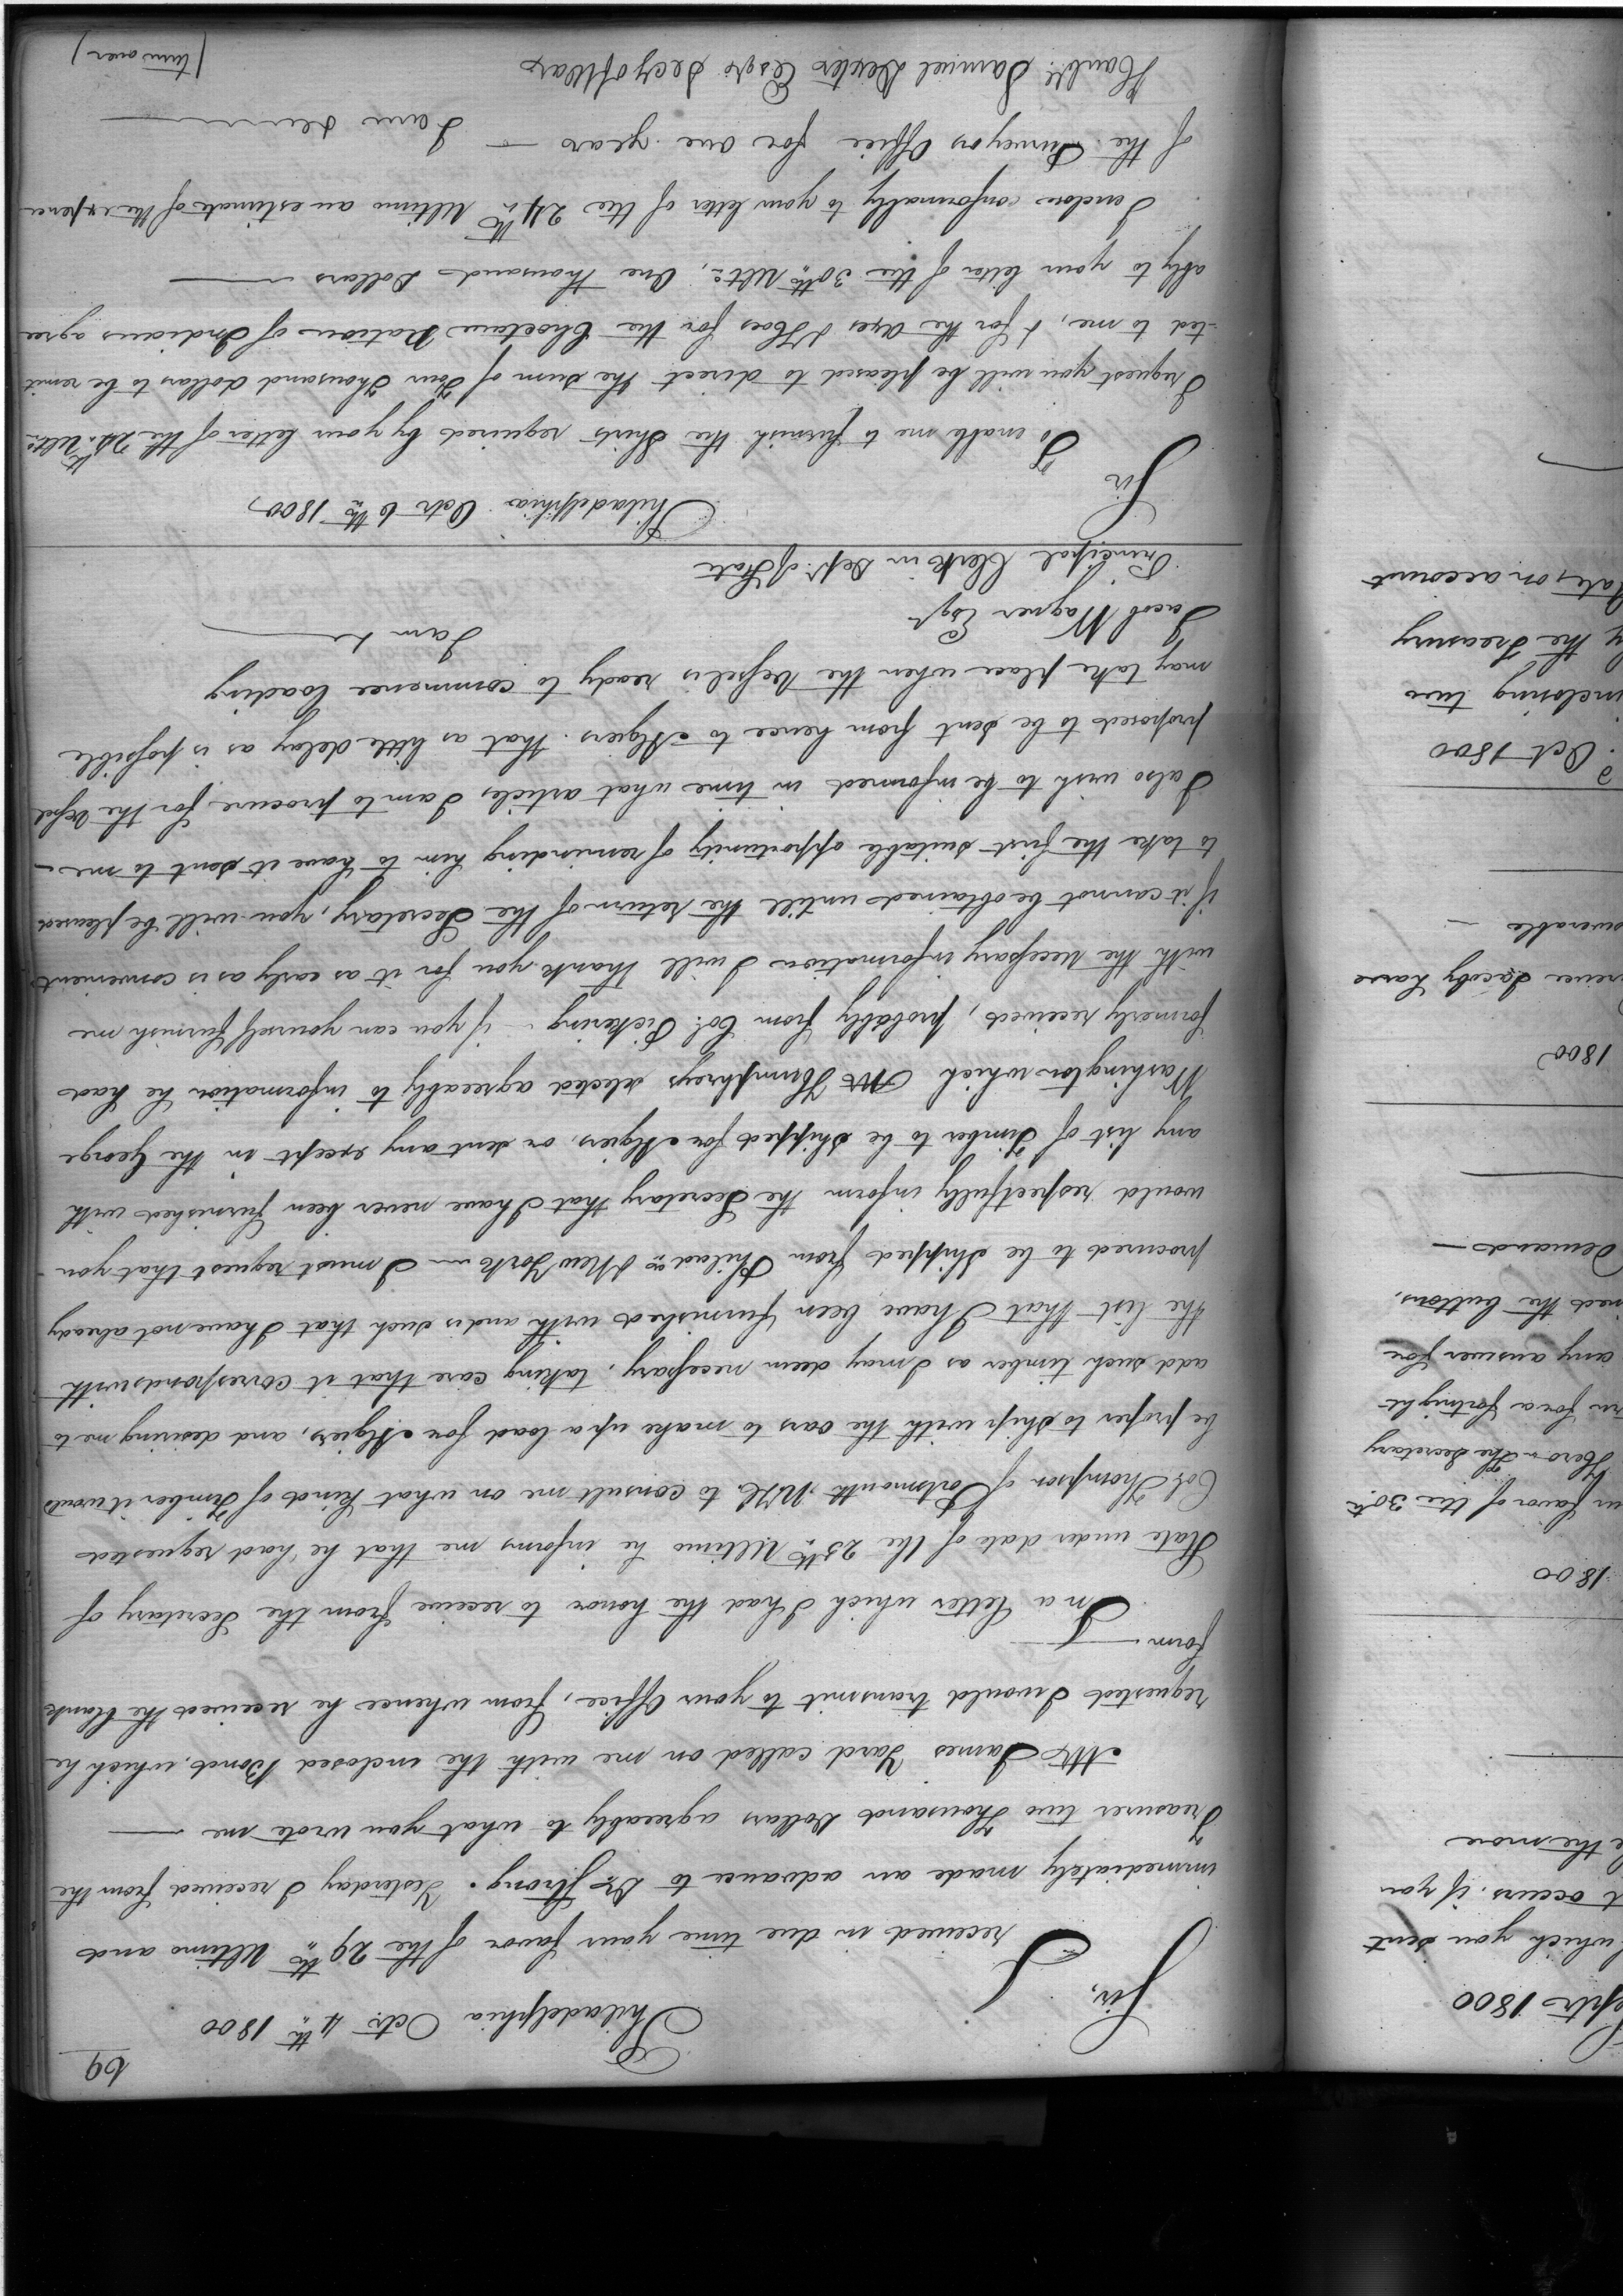 69
Philadelphia Octr. 4th 1800
Sir,
I received in due time your favor of the 29th Ultimo and
immediately made an advance to Dr Strong. Yesterday I received from the
Treasurer two Thousand Dollars agreeably to what you wrote me —
Mr James Yard called on me with the enclosed Bond, which he
requested I would transmit to your Office, from whence he received the blank
form —
In a letter which I had the honor to receive from the Secretary of
State under date of the 25th Ultimo he informs me that he had requested
Col Thompson of Portsmouth N.H. to consult me on what kind of Timber it would
be proper to ship with the oars to make up a load for Algiers, and desiring me to
add such timber as I may deem necessary, taking care that it corresponds with
the list that I have been furnished with and is such that I have not already
procured to be shipped from Philada & New York — I must request that you
would respectfully inform the Secretary that I have never been furnished with
any list of Timber to be shipped for Algiers, or sent any except in the George
Washington which Mr Humphreys selected agreeably to information he had
formerly received, probably from Col. Pickering — if you can yourself furnish me
with the necessary information I will thank you for it as early as is convenient
if it cannot be obtained untill the return of the Secretary, you will be pleased
to take the first suitable opportunity of reminding him to have it sent to me —
I also wish to be informed in time what articles I am to procure for the Vessel
proposed to be sent from hence to Algiers. that as little delay as is possible
may take place when the Vessel is ready to commence loading
I am &
Jacob Wagner Esqr
Principal Clerk in Dept. of State
Philadelphia Octr 6th 1800,
Sir
To enable me to furnish the Shirts required by your letter of the 24th Ulto.
I request you will be pleased to direct the sum of Four Thousand dollars to be remit
-ted to me, & for the Axes & Hoes for the Choctaw Nation of Indians agree
ably to your letter of the 30th Ulto, One Thousand Dollars —
I enclose conformably to your letter of the 24th Ultimo an estimate of the expence
of the Surveyors Office for one year —
I am
Honble. Samuel Dexter Esqr Secy of War
(turn over)
Septr 1800
which you sent
t occurs if you
the more
1800
favor of the 30th
Hero — The Secretary
for a fortnight
any answer for
the buttons,
demand —
1800
Jacoby have
Oct 1800
inclosing two
the Treasury
on account